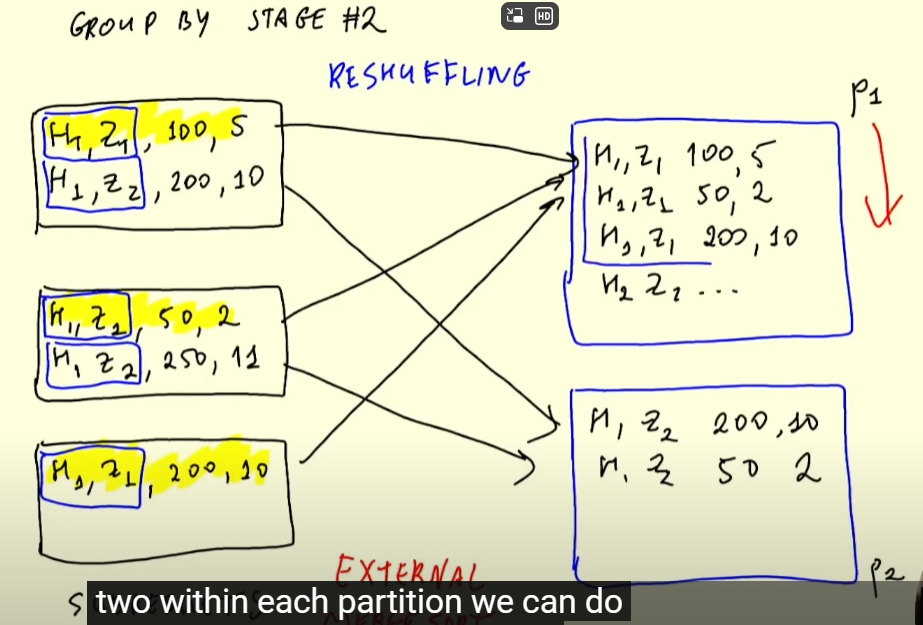 GROUP BY STAGE #2
HD
RESHUFFLING
P1
H1, Z1, 100, 5
H1, Z2, 200, 10
H1, Z1, 50, 2
H1 Z2, 250, 11
H1, Z1, 200, 10
H1, Z1 100, 5
H1, Z1 50, 2
H1, Z1 200, 10
H2 Z2 ...
H1 Z2 200, 10
H1 Z2 50 2
P2
EXTERNAL
MERGE SORT
two within each partition we can do